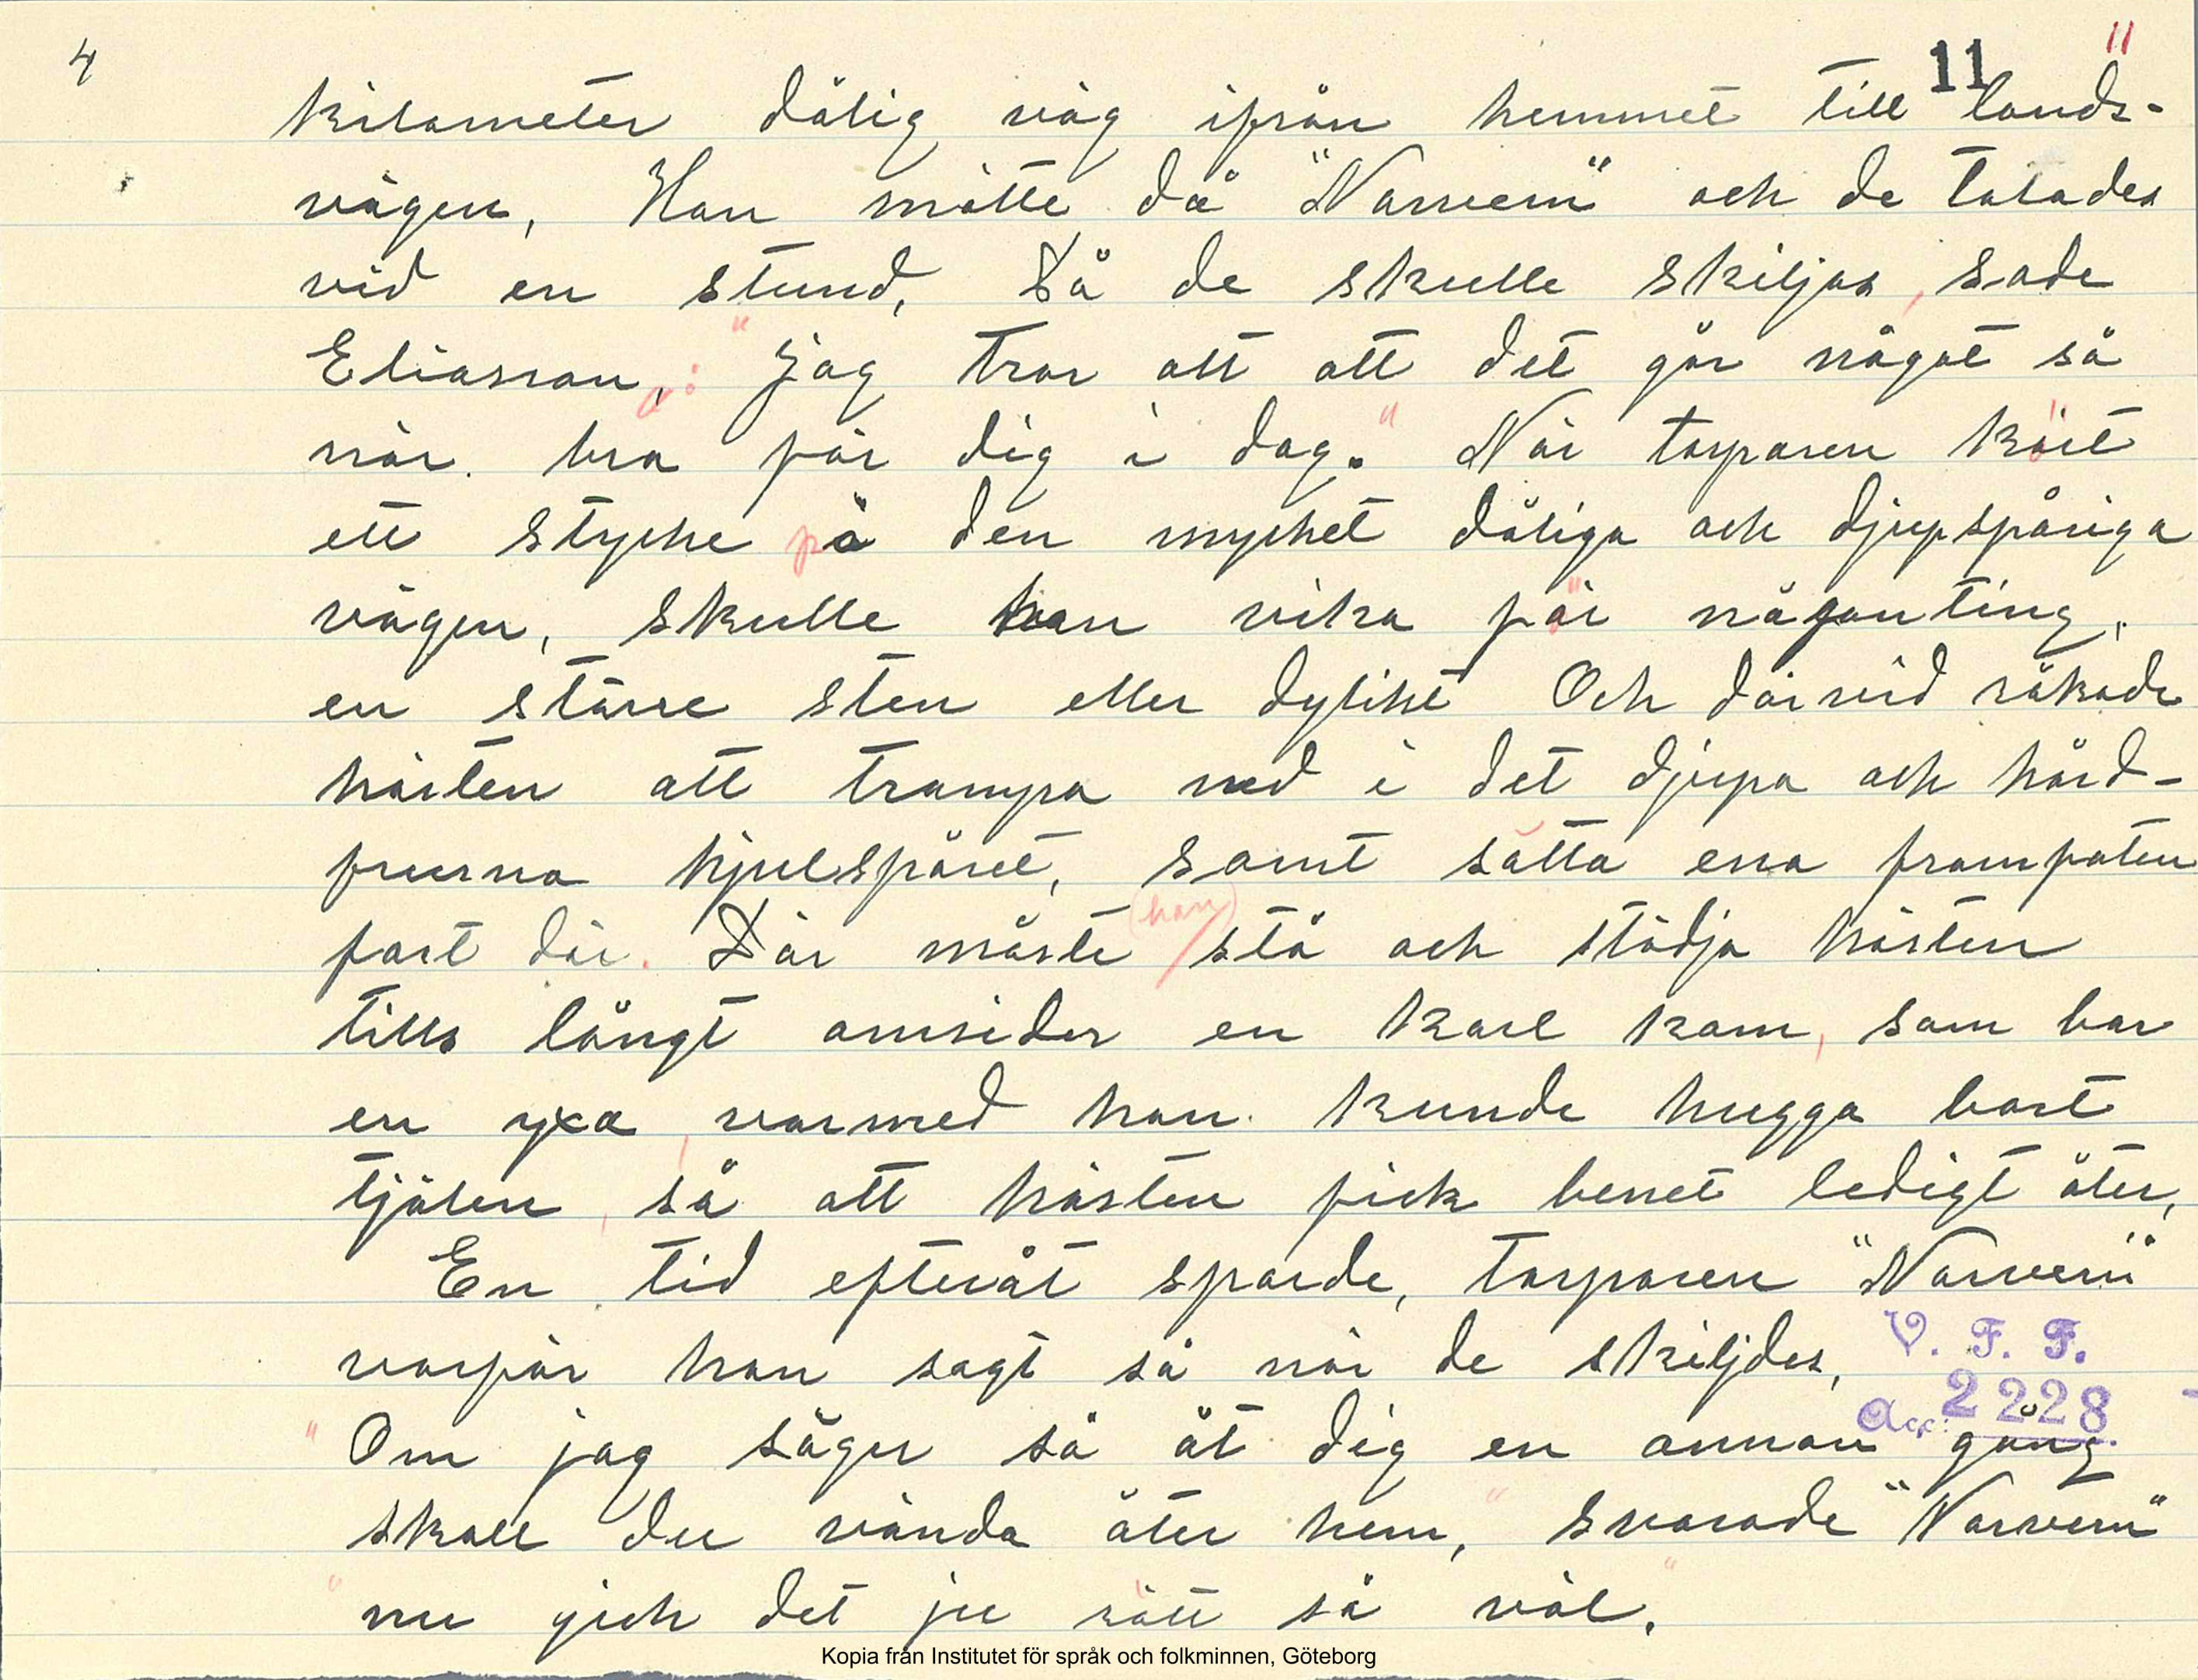 4
11
11
kilometer dålig väg ifrån hemmet till lands-
vägen, Han mötte då "Narvern" och de talades
vid en stund, Då de skulle skiljas, sade
Eliasson, : "jag tror att att det går något så
när bra för dig i dag." När torparen kört
ett stycke på den mycket dåliga och djupspåriga
vägen, skulle han vika för någonting,
en större sten eller dylikt Och därvid råkade
hästen att trampa ned i det djupa och hård-
frusna hjulspåret, samt sätta ena framfoten
fast där. Där måste (han) stå och stödja hästen
tills långt omsider en karl kom, som bar
en yxa, varmed han kunde hugga bort
tjälen, så att hästen fick benet ledigt åter,
En tid efteråt sporde, torparen "Narvern"
varför han sagt så när de skiljdes,
V. F. F.
Acc. 2228.
"Om jag säger så åt dig en annan gång
skall du vända åter hem," svarade "Narvern"
"nu gick det ju rätt så väl."
Kopia från Institutet för språk och folkminnen, Göteborg